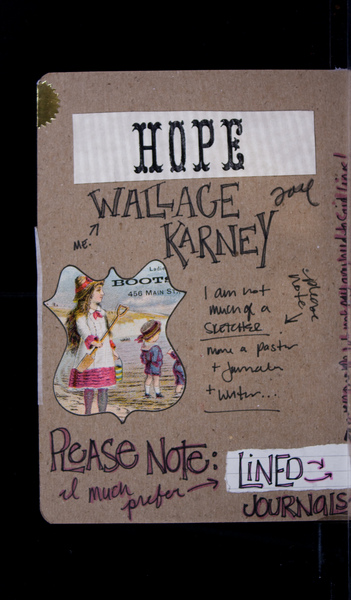 HOPE
WALLACE
ME.
KARNEY
Ladie
BOOTS
456 MAIN ST
I am not
much of a
SKETCHER
please
note
more a paster
+ journaler
+ writer...
PLEASE NOTE:
I much
prefer
LINED
JOURNALS